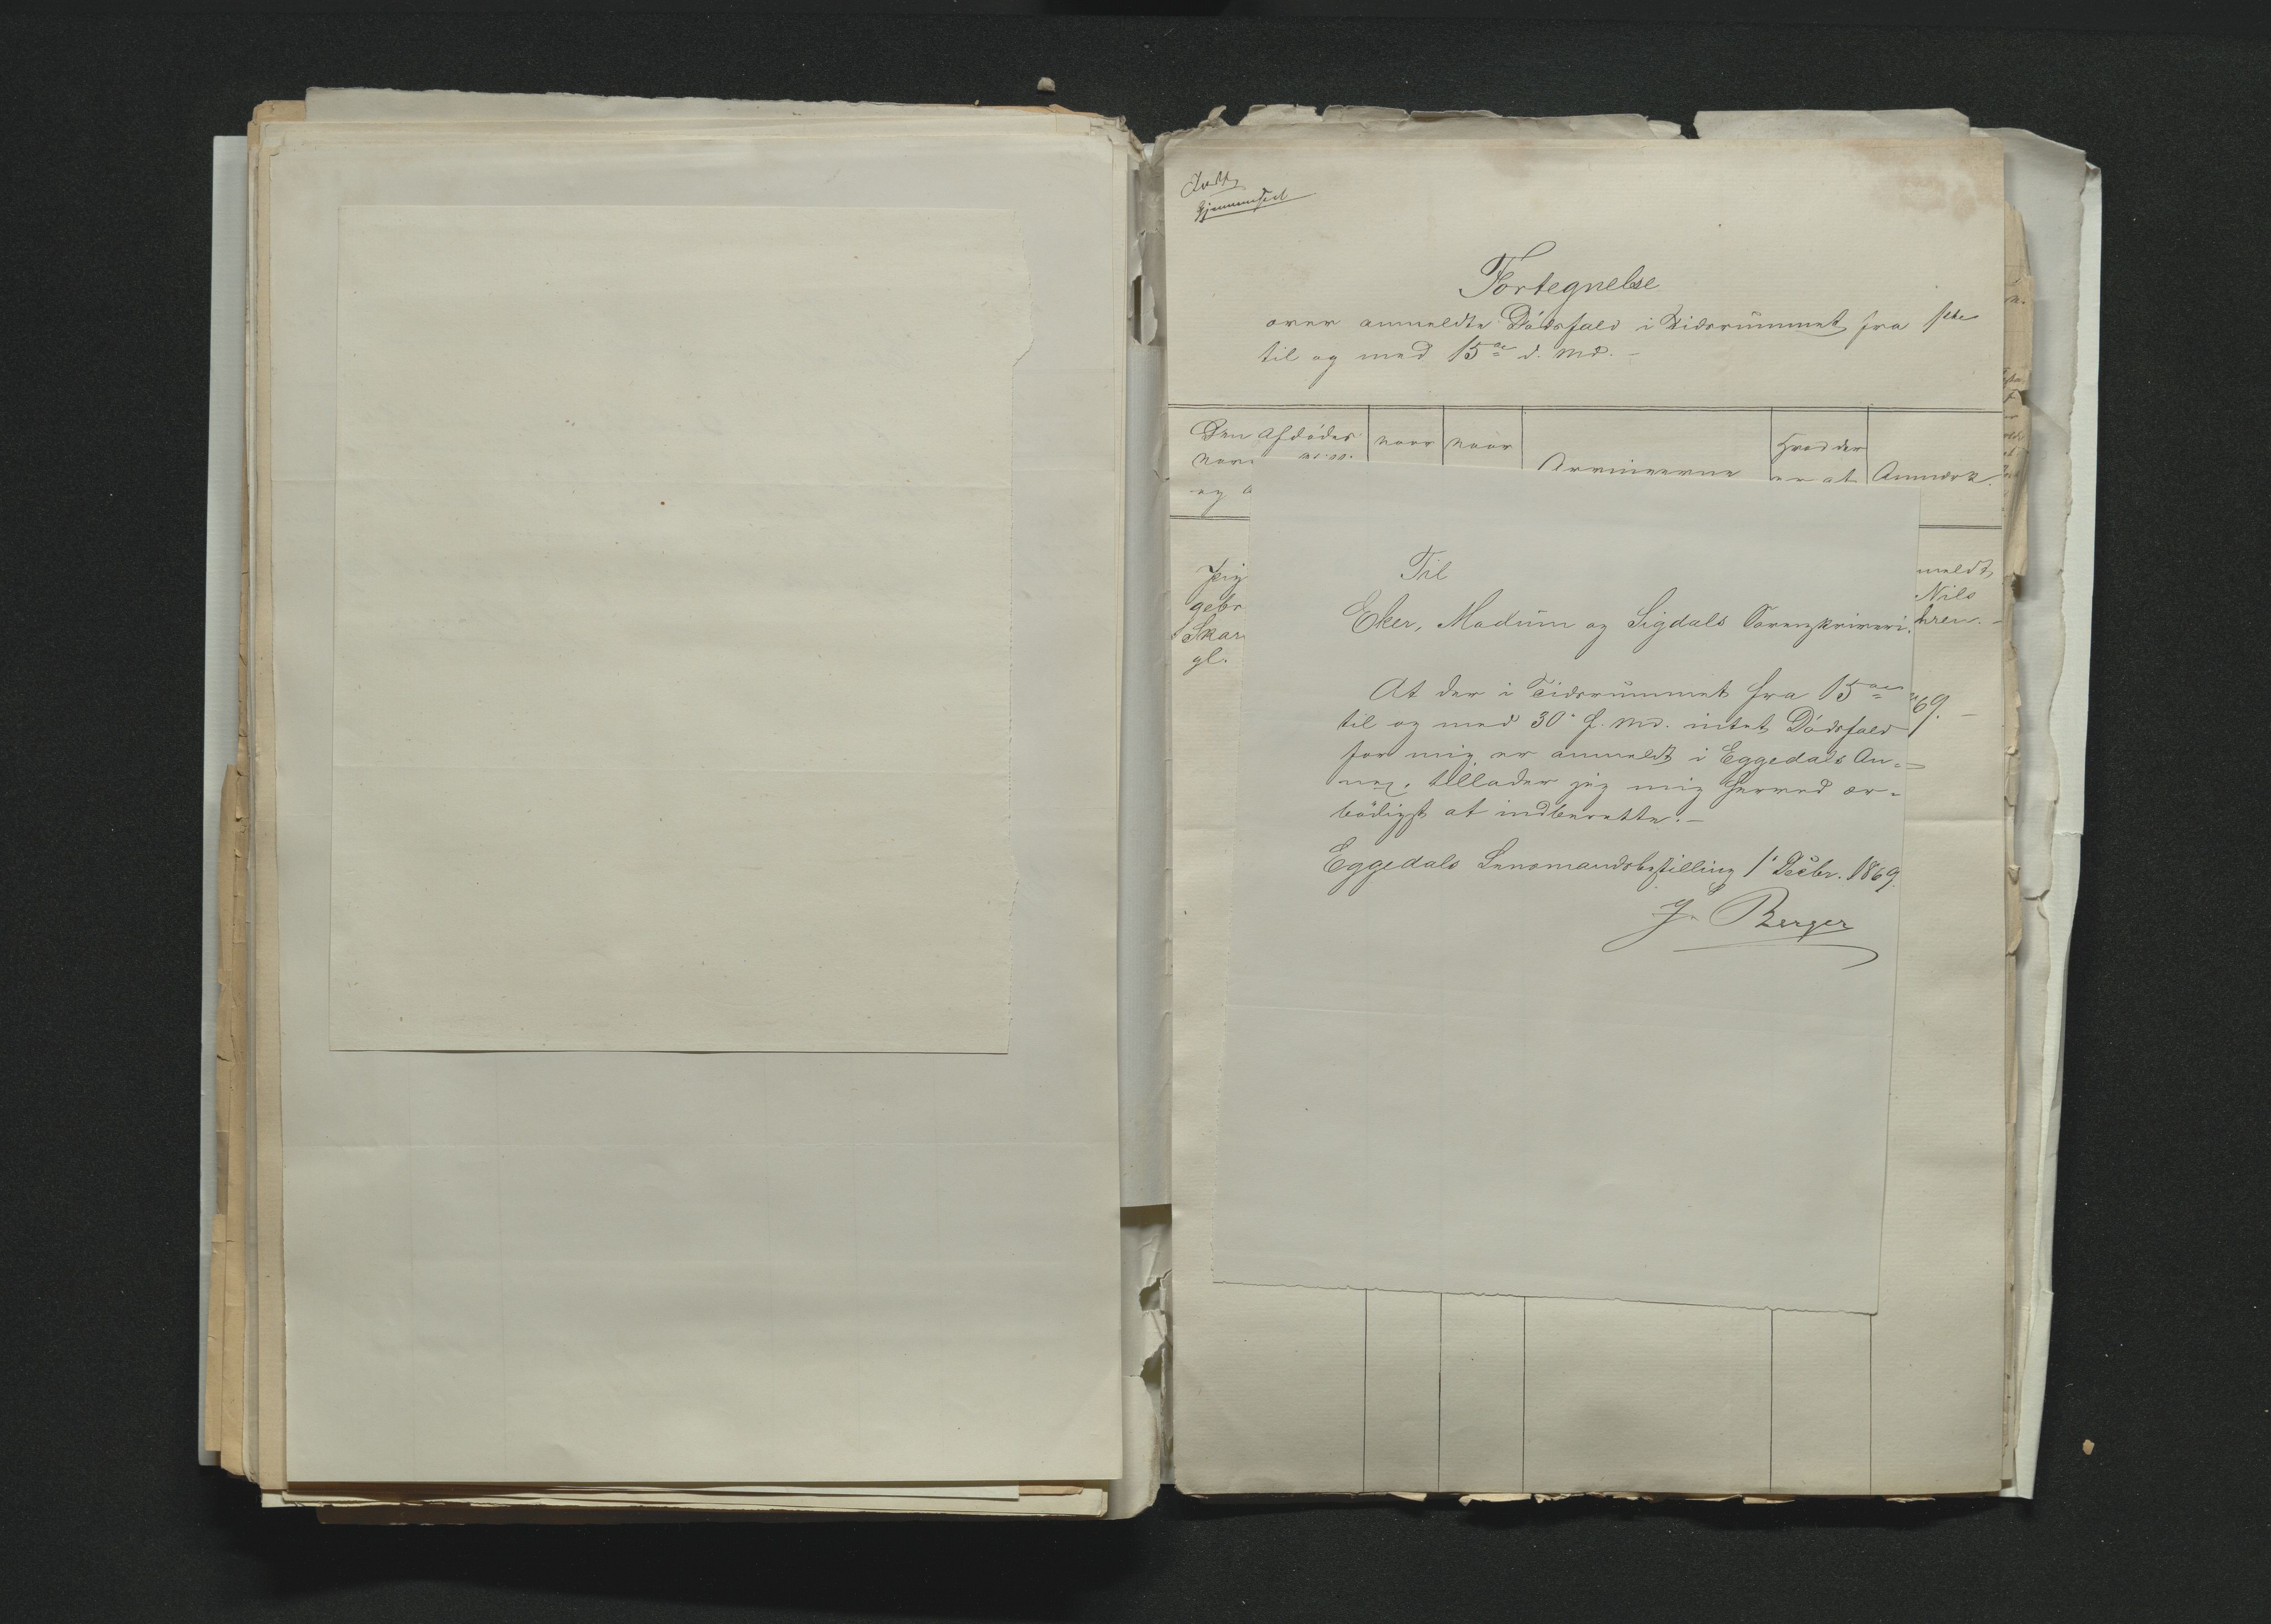 Indt.
Gjennemseet
Fortegnelse
over anmeldte Dödsfald i Tidsrummet fra 1ste
til og med 15de d. Md. –
Den Afdödes
naar
naar
Arvingerne
Hvad der
er at
Anmærk.
og
Pig
gebr
Skar
gl.
meldt
Nils
hren. –
69. –
Til
Eker, Modum og Sigdals Sorenskriveri.
At der i Tidsrummet fra 15de
til og med 30' f. Md. intet Dödsfald
for mig er anmeldt i Eggedals An-
nex, tillader jeg mig herved ær-
bödigst at indberette. –
Eggedals Lensmandsbestilling 1' Decbr. 1869.
J. Berger